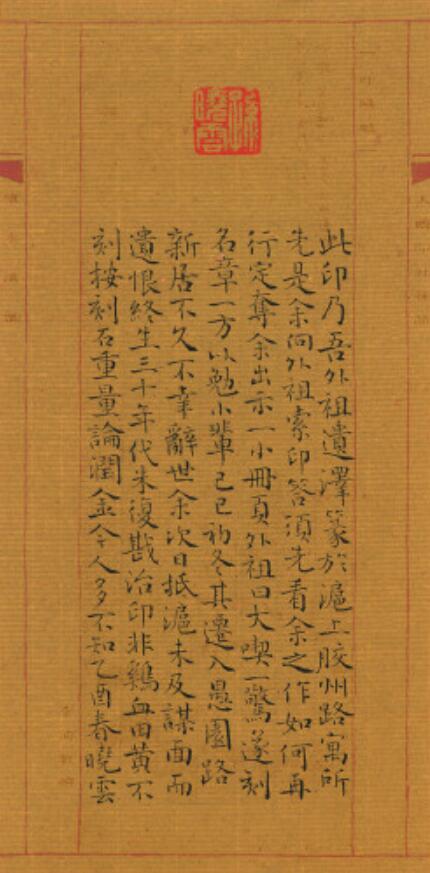 孫曉雲
此印乃吾外祖遺澤篆於滬上胶州路寓所
先是余向外祖索印答須先看余之作如何再
行定奪余出示一小冊頁外祖曰大喫一驚遂刻
名章一方以勉小輩己巳初冬其遷入愚園路
新居不久不幸辭世余次日抵滬未及謀面而
遺恨終生三十年代朱復戡治印非鷄血田黄不
刻按刻石重量論潤金今人多不知乙酉春曉雲